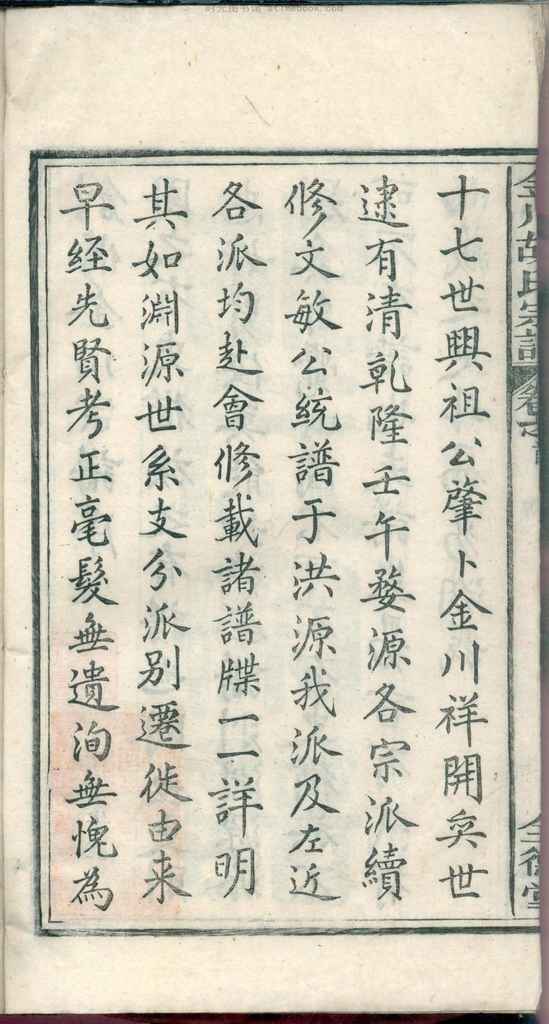 时光图书馆 atimebook.com
金川胡氏宗譜 卷首
十七世興祖公肇卜金川祥開奕世
逮有清乾隆壬午婺源各宗派續
修文敏公統譜于洪源我派及左近
各派均赴會修載諸譜牒一一詳明
其如淵源世系支分派別遷徙由来
早経先賢考正毫髮無遺洵無愧為